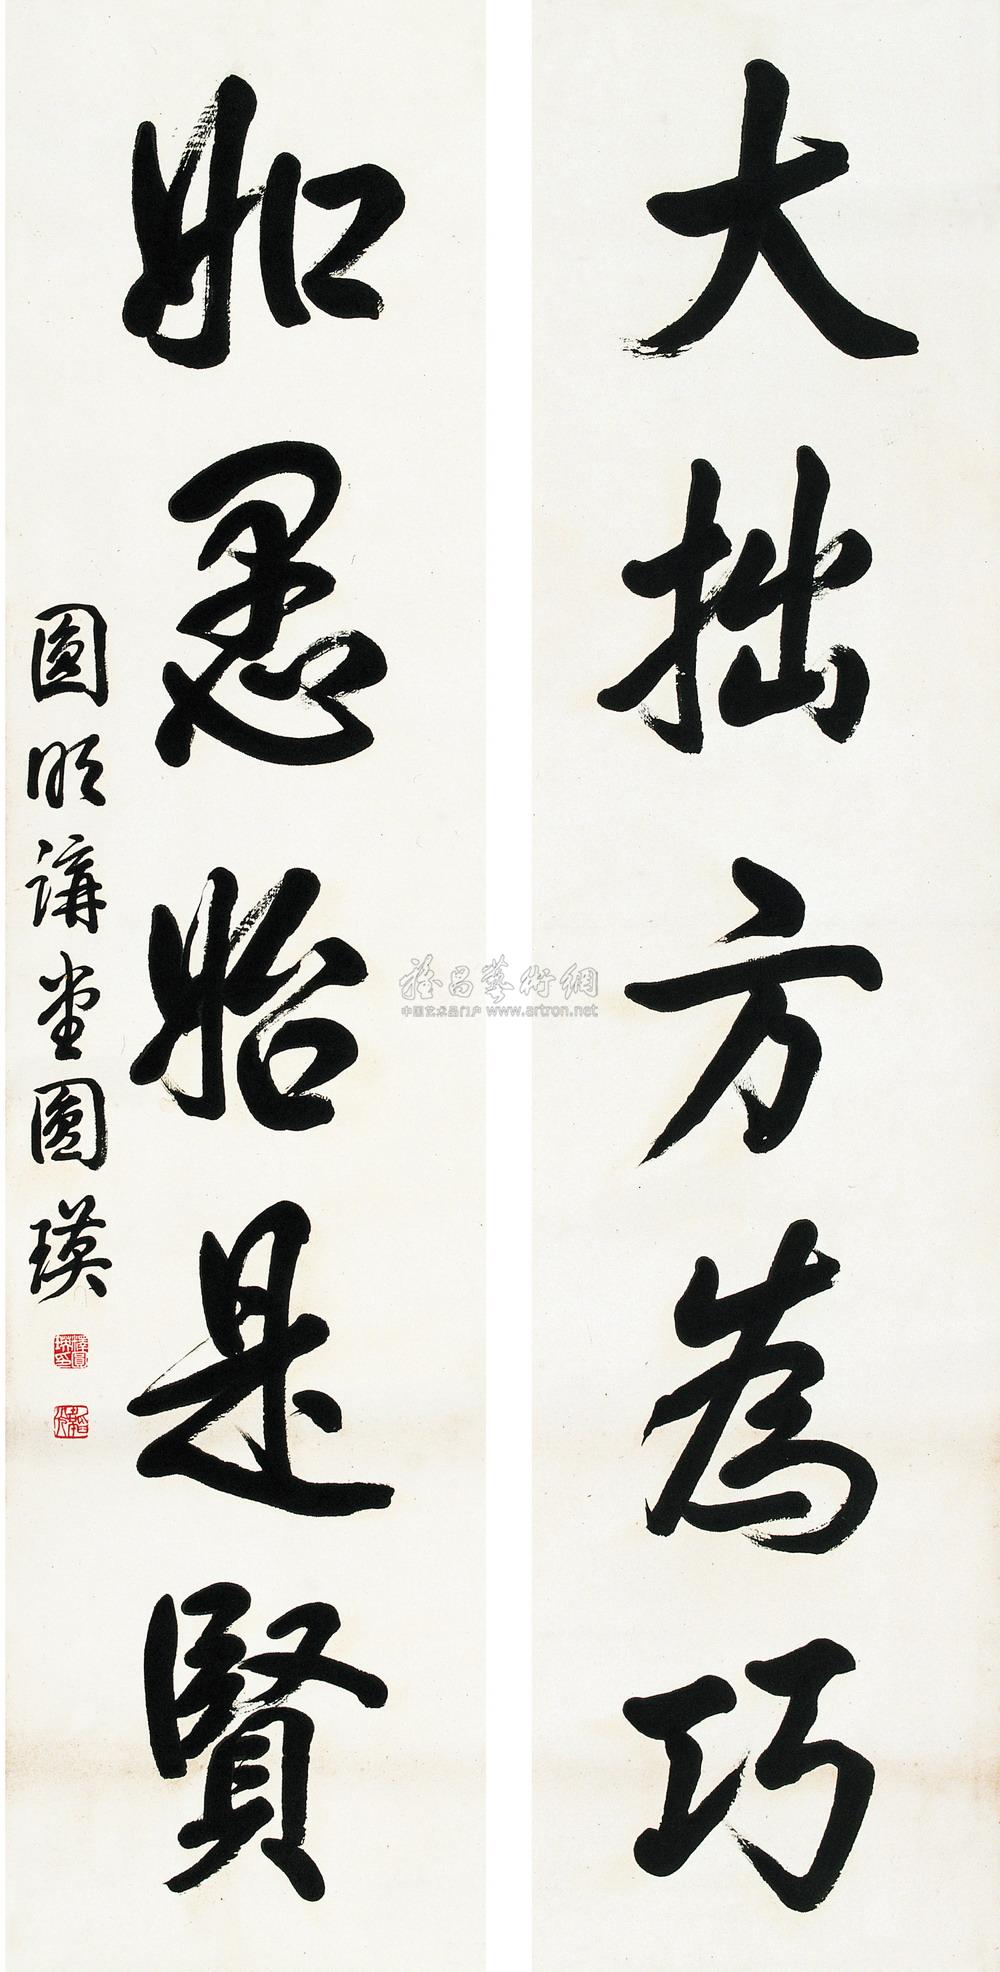 大拙方為巧
如愚始是賢
圓明講堂圓瑛
釋圓瑛印
雅昌藝術網
中国艺术品门户 www.artron.net